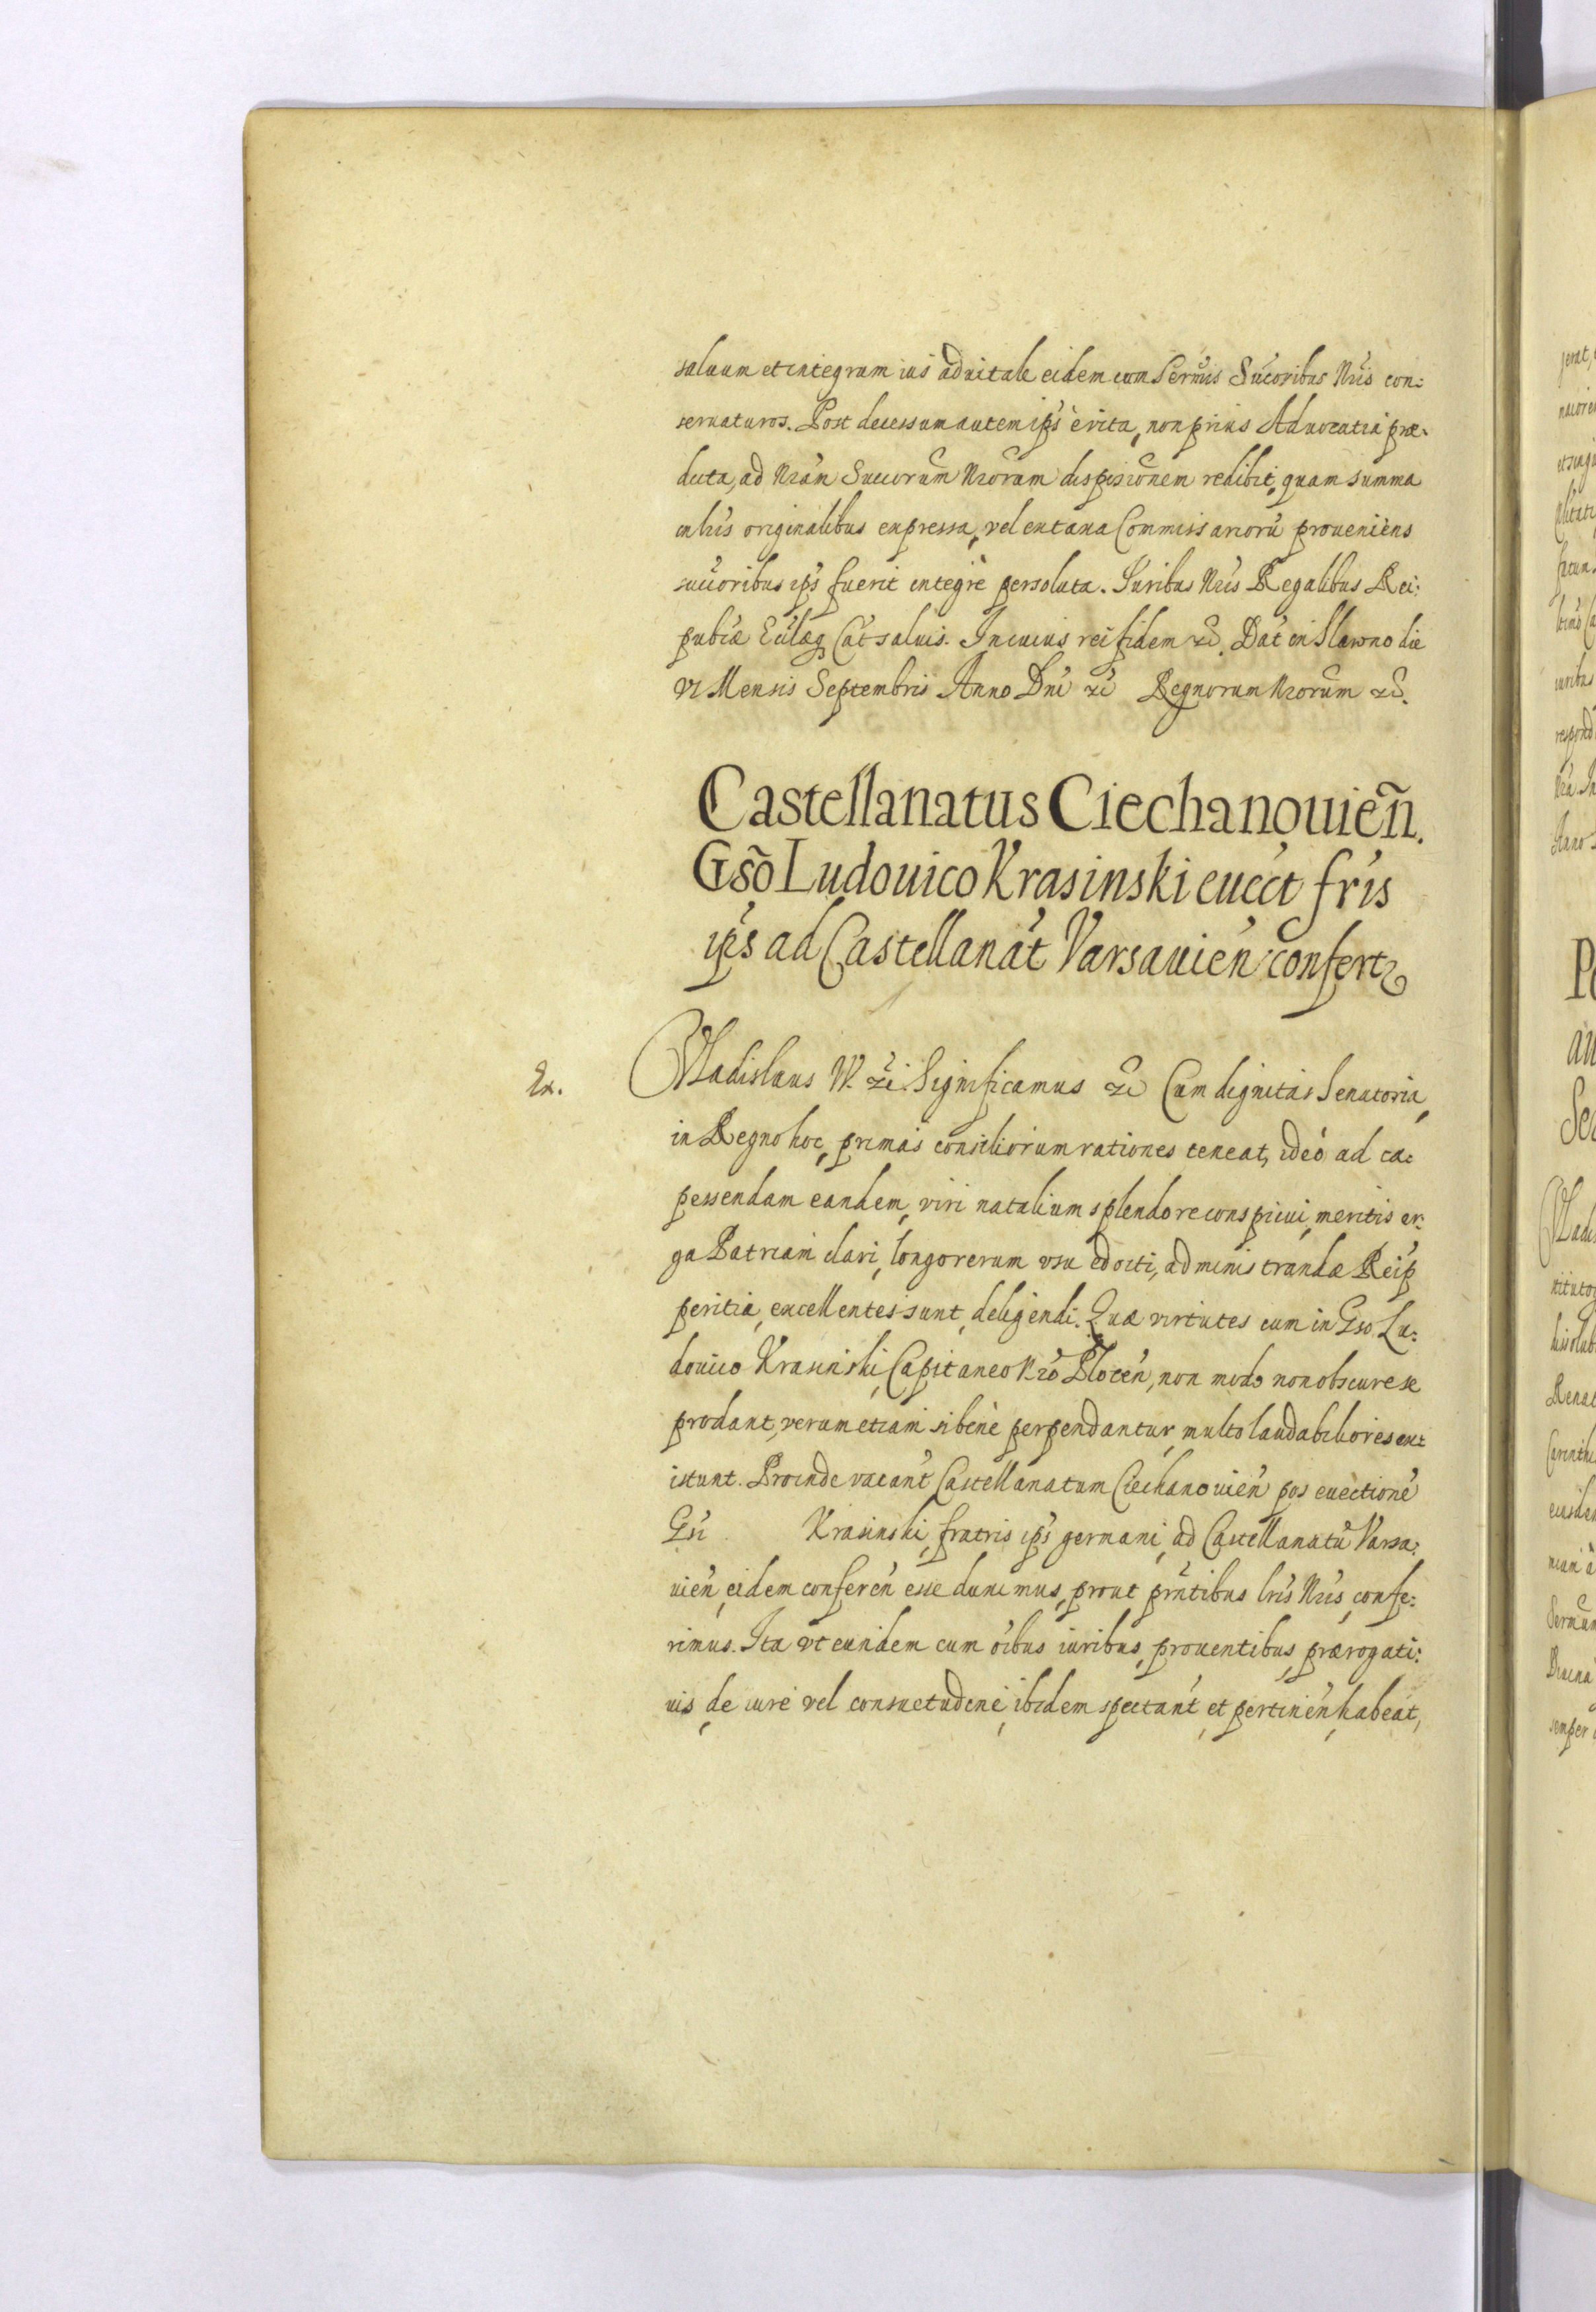 saluum et integrum ius aduitale eidem cum Sermis Sucoribus Nris con:
seruaturos. Post decessum autem ips è vita, non prius Aduocatia præ:
dicta, ad Nram Succorum Nrorum dispisionem redibit, quam summa
in lris originalibus expressa, vel ex taxa Commissariorũ proueniens
succoribus ips fuerit integrè persoluta. Iuribus Nris Regalibus Rei:
publæ Ecclæq Cat saluis. In cuius rei fidem etc. Dat in Slawno die
VI Mensis Septembris Anno Dni etc Regnorum Nrorum etc.
Castellanatus Ciechanouieñ.
Gsõ Ludouico Krasinski euect fris
ips ad Castellanat Varsauien confert
Ex.
Vladislaus IV. etc. Significamus etc Cum dignitas Senatoria,
in Regno hoc, primas consiliorum rationes teneat, ideó ad ca:
pessendam eandem, viri natalium splendore conspicui, meritis er:
ga Patriam clari, longo rerum vsu edocti, administrandæ Reip
peritia, excellentes sunt, deligendi. Quæ virtutes cum in Gso Lu:
douico Krasinski, Capitaneo Nro Plocen, non modo non obscure se
prodant, verum etiam si benè perpendantur, multo laudabiliores ex:
istunt. Proinde vacant Castellanatum Ciechanouien pos euectionẽ
Gsi Krasinski, fratris ips germani, ad Castellanatũ Varsa:
uien, eidem conferen esse duximus, prout prntibus lris Nris, confe:
rimus. Ita vt eundem cum oibus iuribus, prouentibus, prærogati:
uis, de iure vel consuetudine, ibidem spectant, et pertinen, habeat,